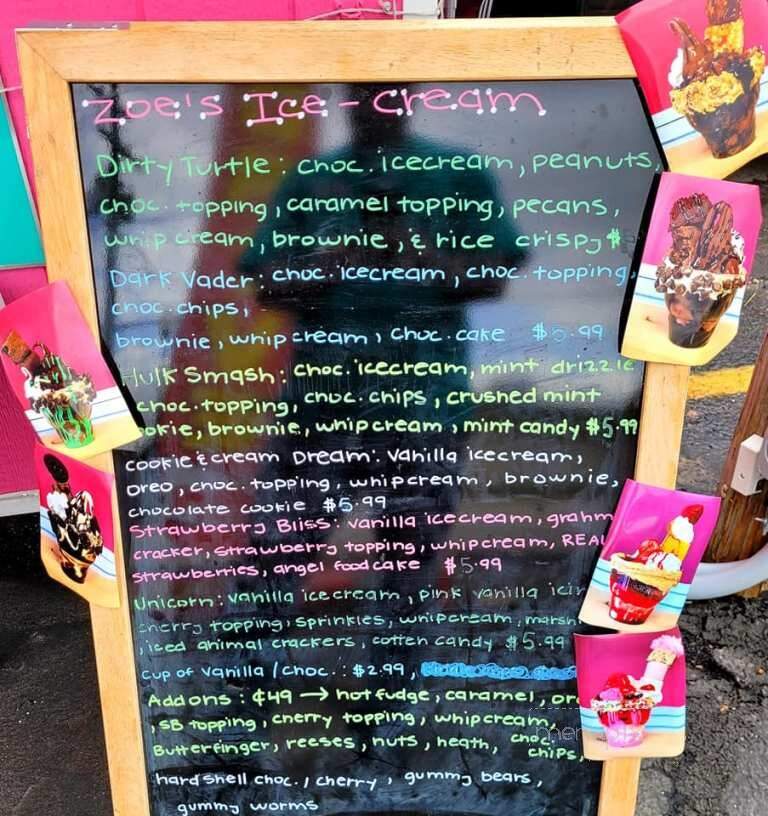 Zoe's Ice-cream
Dirty Turtle: choc. icecream, peanuts,
choc. topping, caramel topping, pecans,
whip cream, brownie, & rice crispy $
Dark Vader: choc. icecream, choc. topping,
choc. chips,
brownie, whip cream, choc. cake $5.99
Hulk Smash: choc. icecream, mint drizzle
choc. topping, choc. chips, crushed mint
brownie, whip cream, mint candy $5.99
cookie & cream Dream: vanilla icecream,
oreo, choc. topping, whipcream, brownie,
chocolate cookie $5.99
Strawberry Bliss: vanilla icecream, grahm
cracker, strawberry topping, whipcream, REAL
strawberries, angel food cake $5.99
Unicorn: vanilla icecream, pink vanilla
cherry topping, sprinkles, whipcream,
, iced animal crackers, cotten candy $5.99
cup of vanilla / choc.: $2.99,
Add ons: ¢49 → hot fudge, caramel,
, SB topping, cherry topping, whipcream,
Butterfinger, reeses, nuts, heath, choc. chips,
hard shell choc. / cherry, gummy bears,
gummy worms